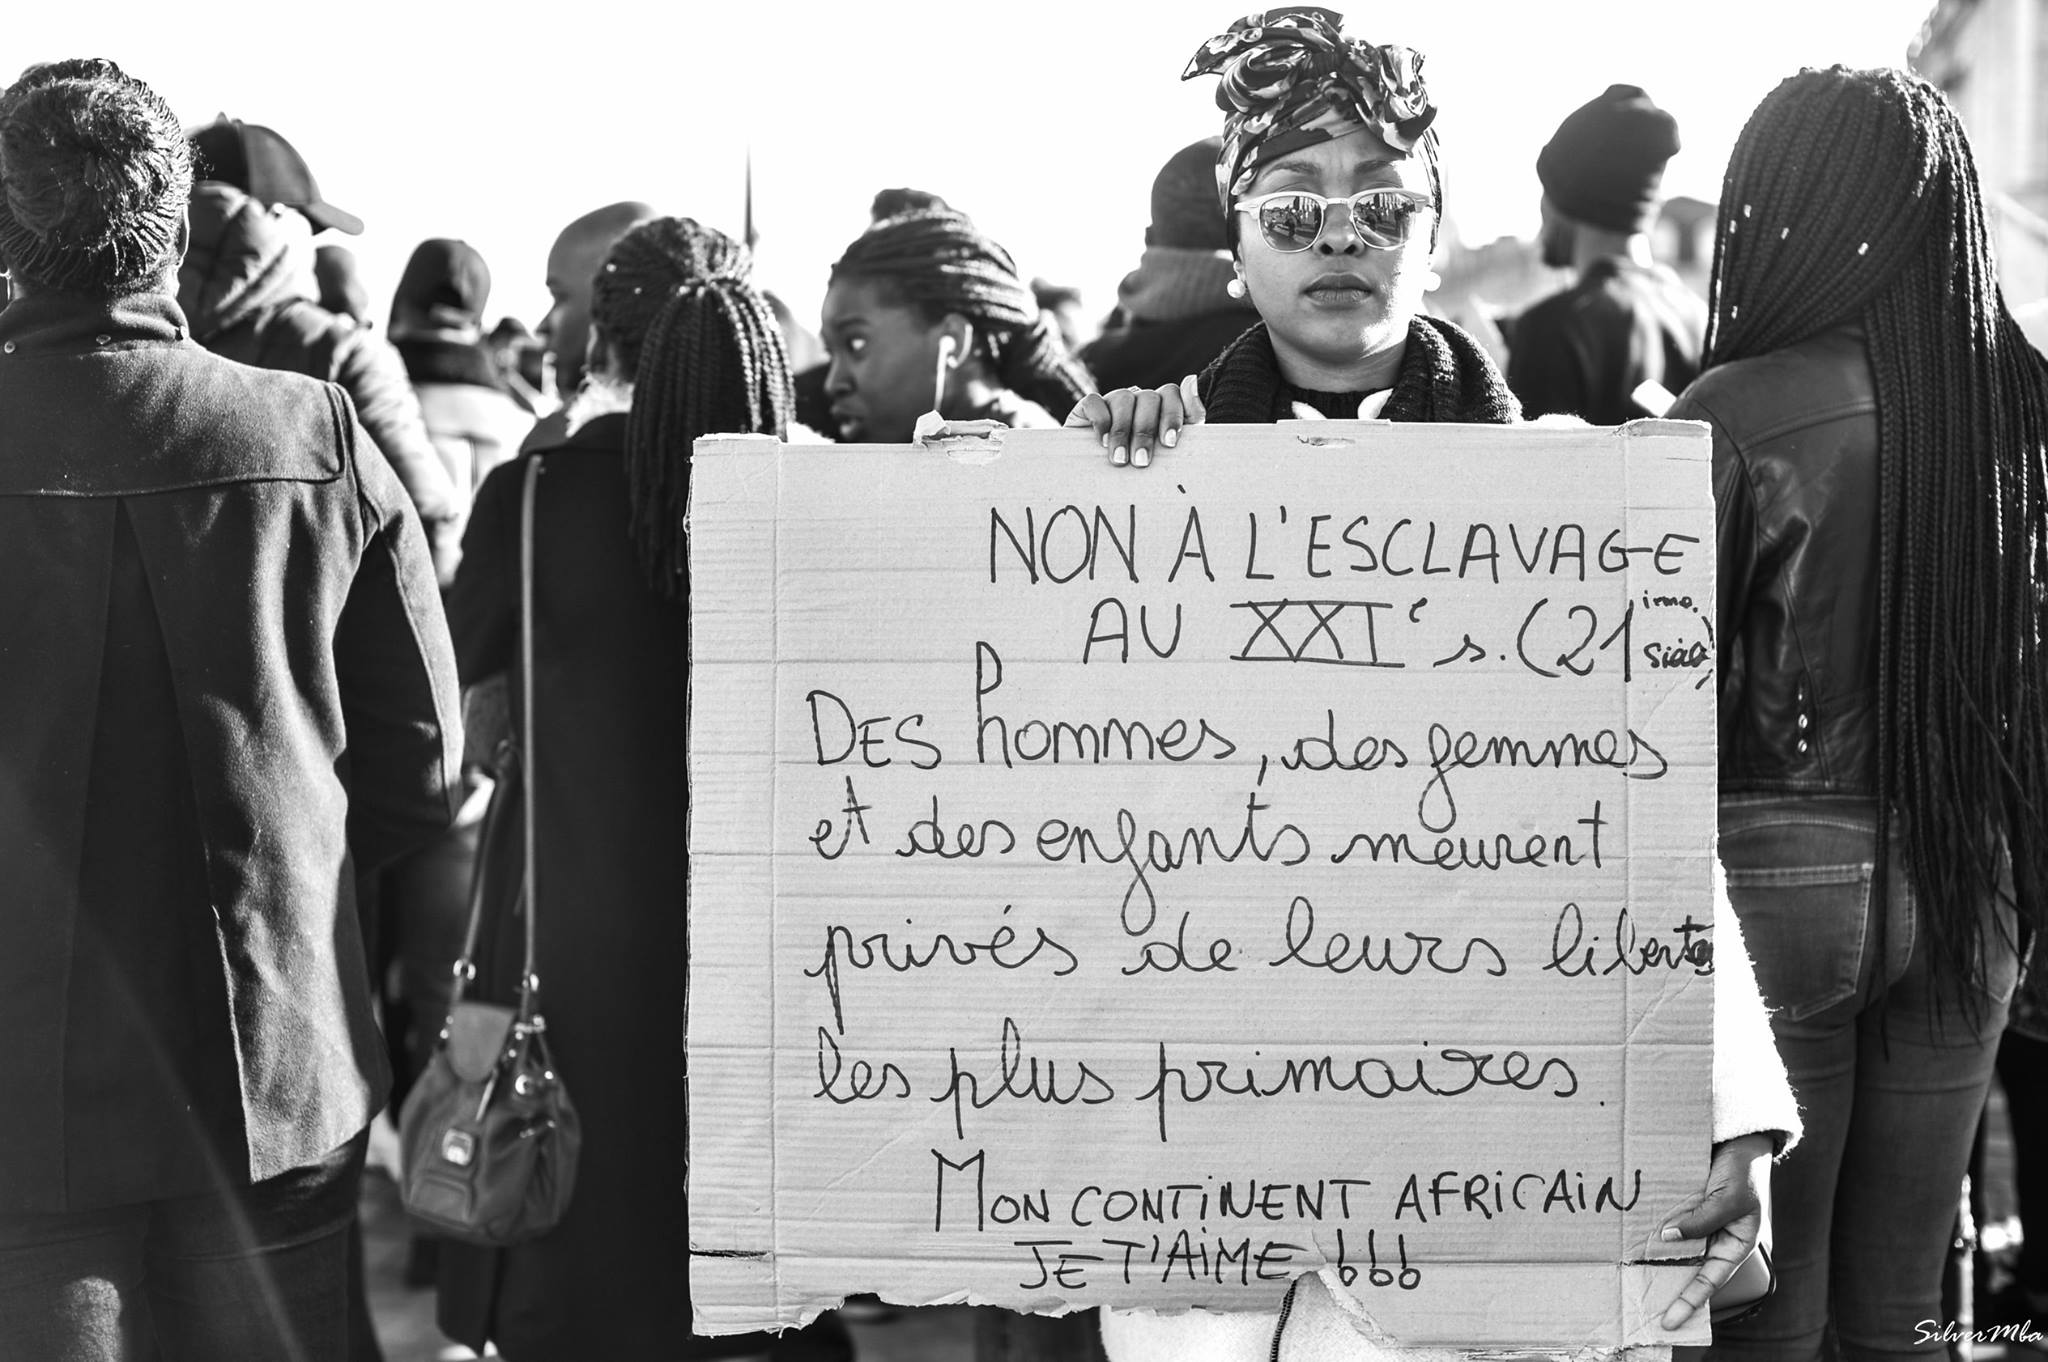 NON À L'ESCLAVAGE
AU XXIe s. (21
DES hommes, des femmes
et des enfants meurent
privés de leurs libertés
les plus primaires.
MON CONTINENT AFRICAIN
JE T'AIME !!!
SilverMba